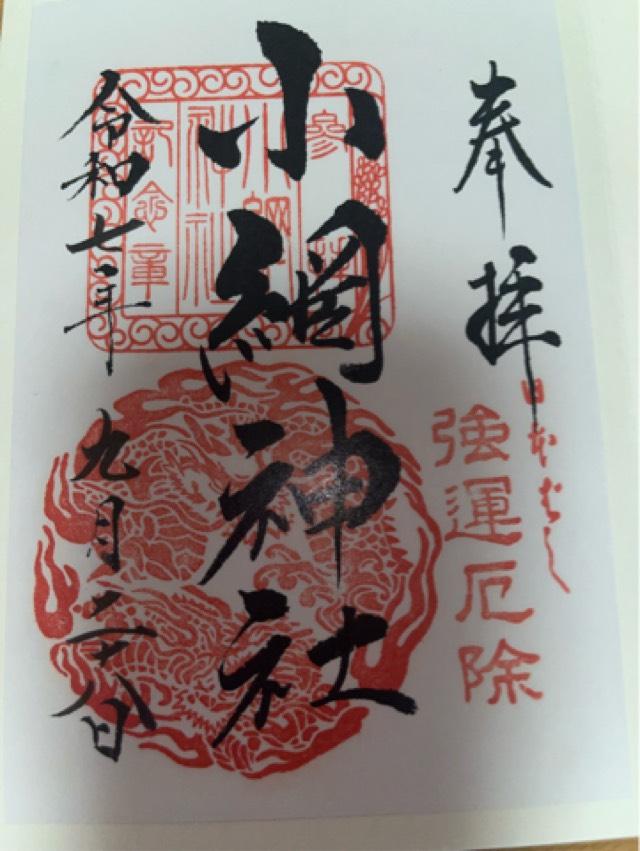 奉拝
日本ばし
強運厄除
小網神社
参拝
小網神社
記念章
令和七年九月二十八日